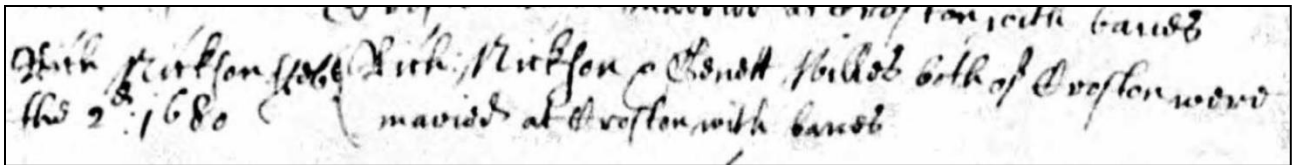 maried at Croston with banes
Rich Nickson Feb: Rich: Nickson & Genett Willes both of Croston were
the 2d: 1680 maried at Croston with banes